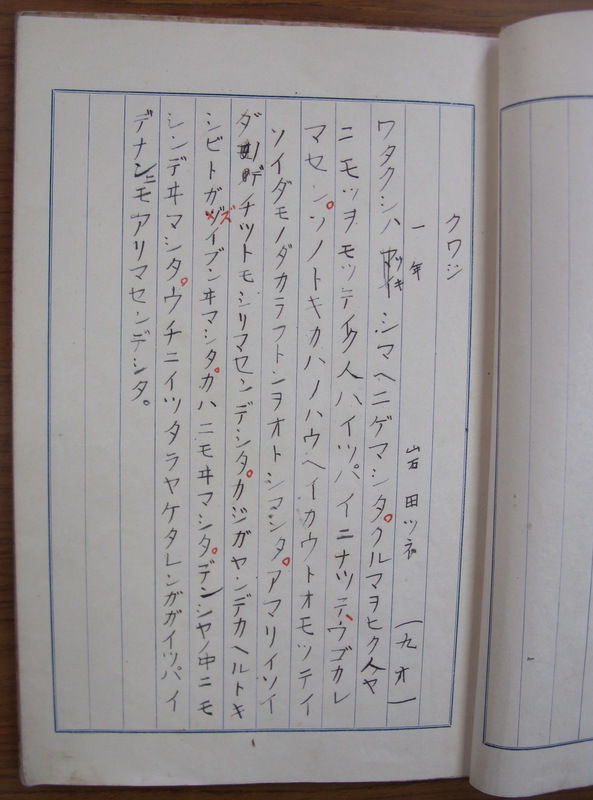 クワジ
一年 岩田ツネ (九才)
ワタクシハ マツキシマヘニゲマシタ。クルマヲヒク人ヤ
ニモツヲモツテイク人ハイツパイニナツテ、ウゴカレ
マセン。ソノトキカハノハウヘイカウトオモツテイ
ソイダモノダカラフトンヲオトシマシタ。アマリイソイ
ダノデチツトモシリマセンデシタ。カジガヤンデカヘルトキ
シビトガズイブンヰマシタ。カハニモヰマシタ。デンシヤノ中ニモ
シンデヰマシタ。ウチニイツタラヤケタレンガガイツパイ
デナンニモアリマセンデシタ。